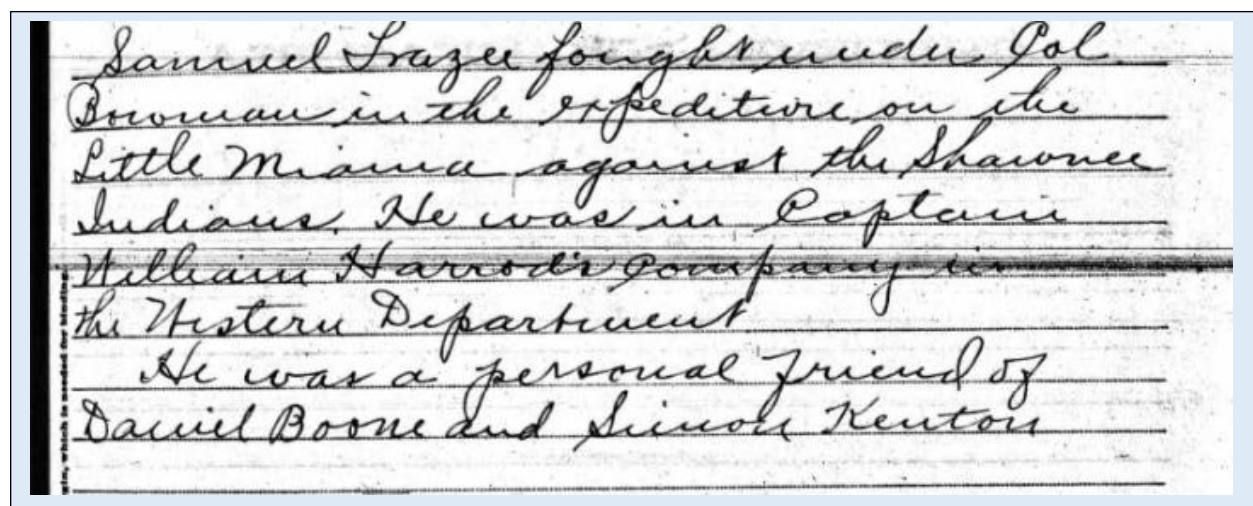 Samuel Frazee fought under Col
Bowman in the expedition on the
Little Miama against the Shawnee
Indians. He was in Captain
William Harrod's Company in
the Western Department
He was a personal friend of
Daniel Boone and Simon Kenton
which is needed for binding
which is needed for